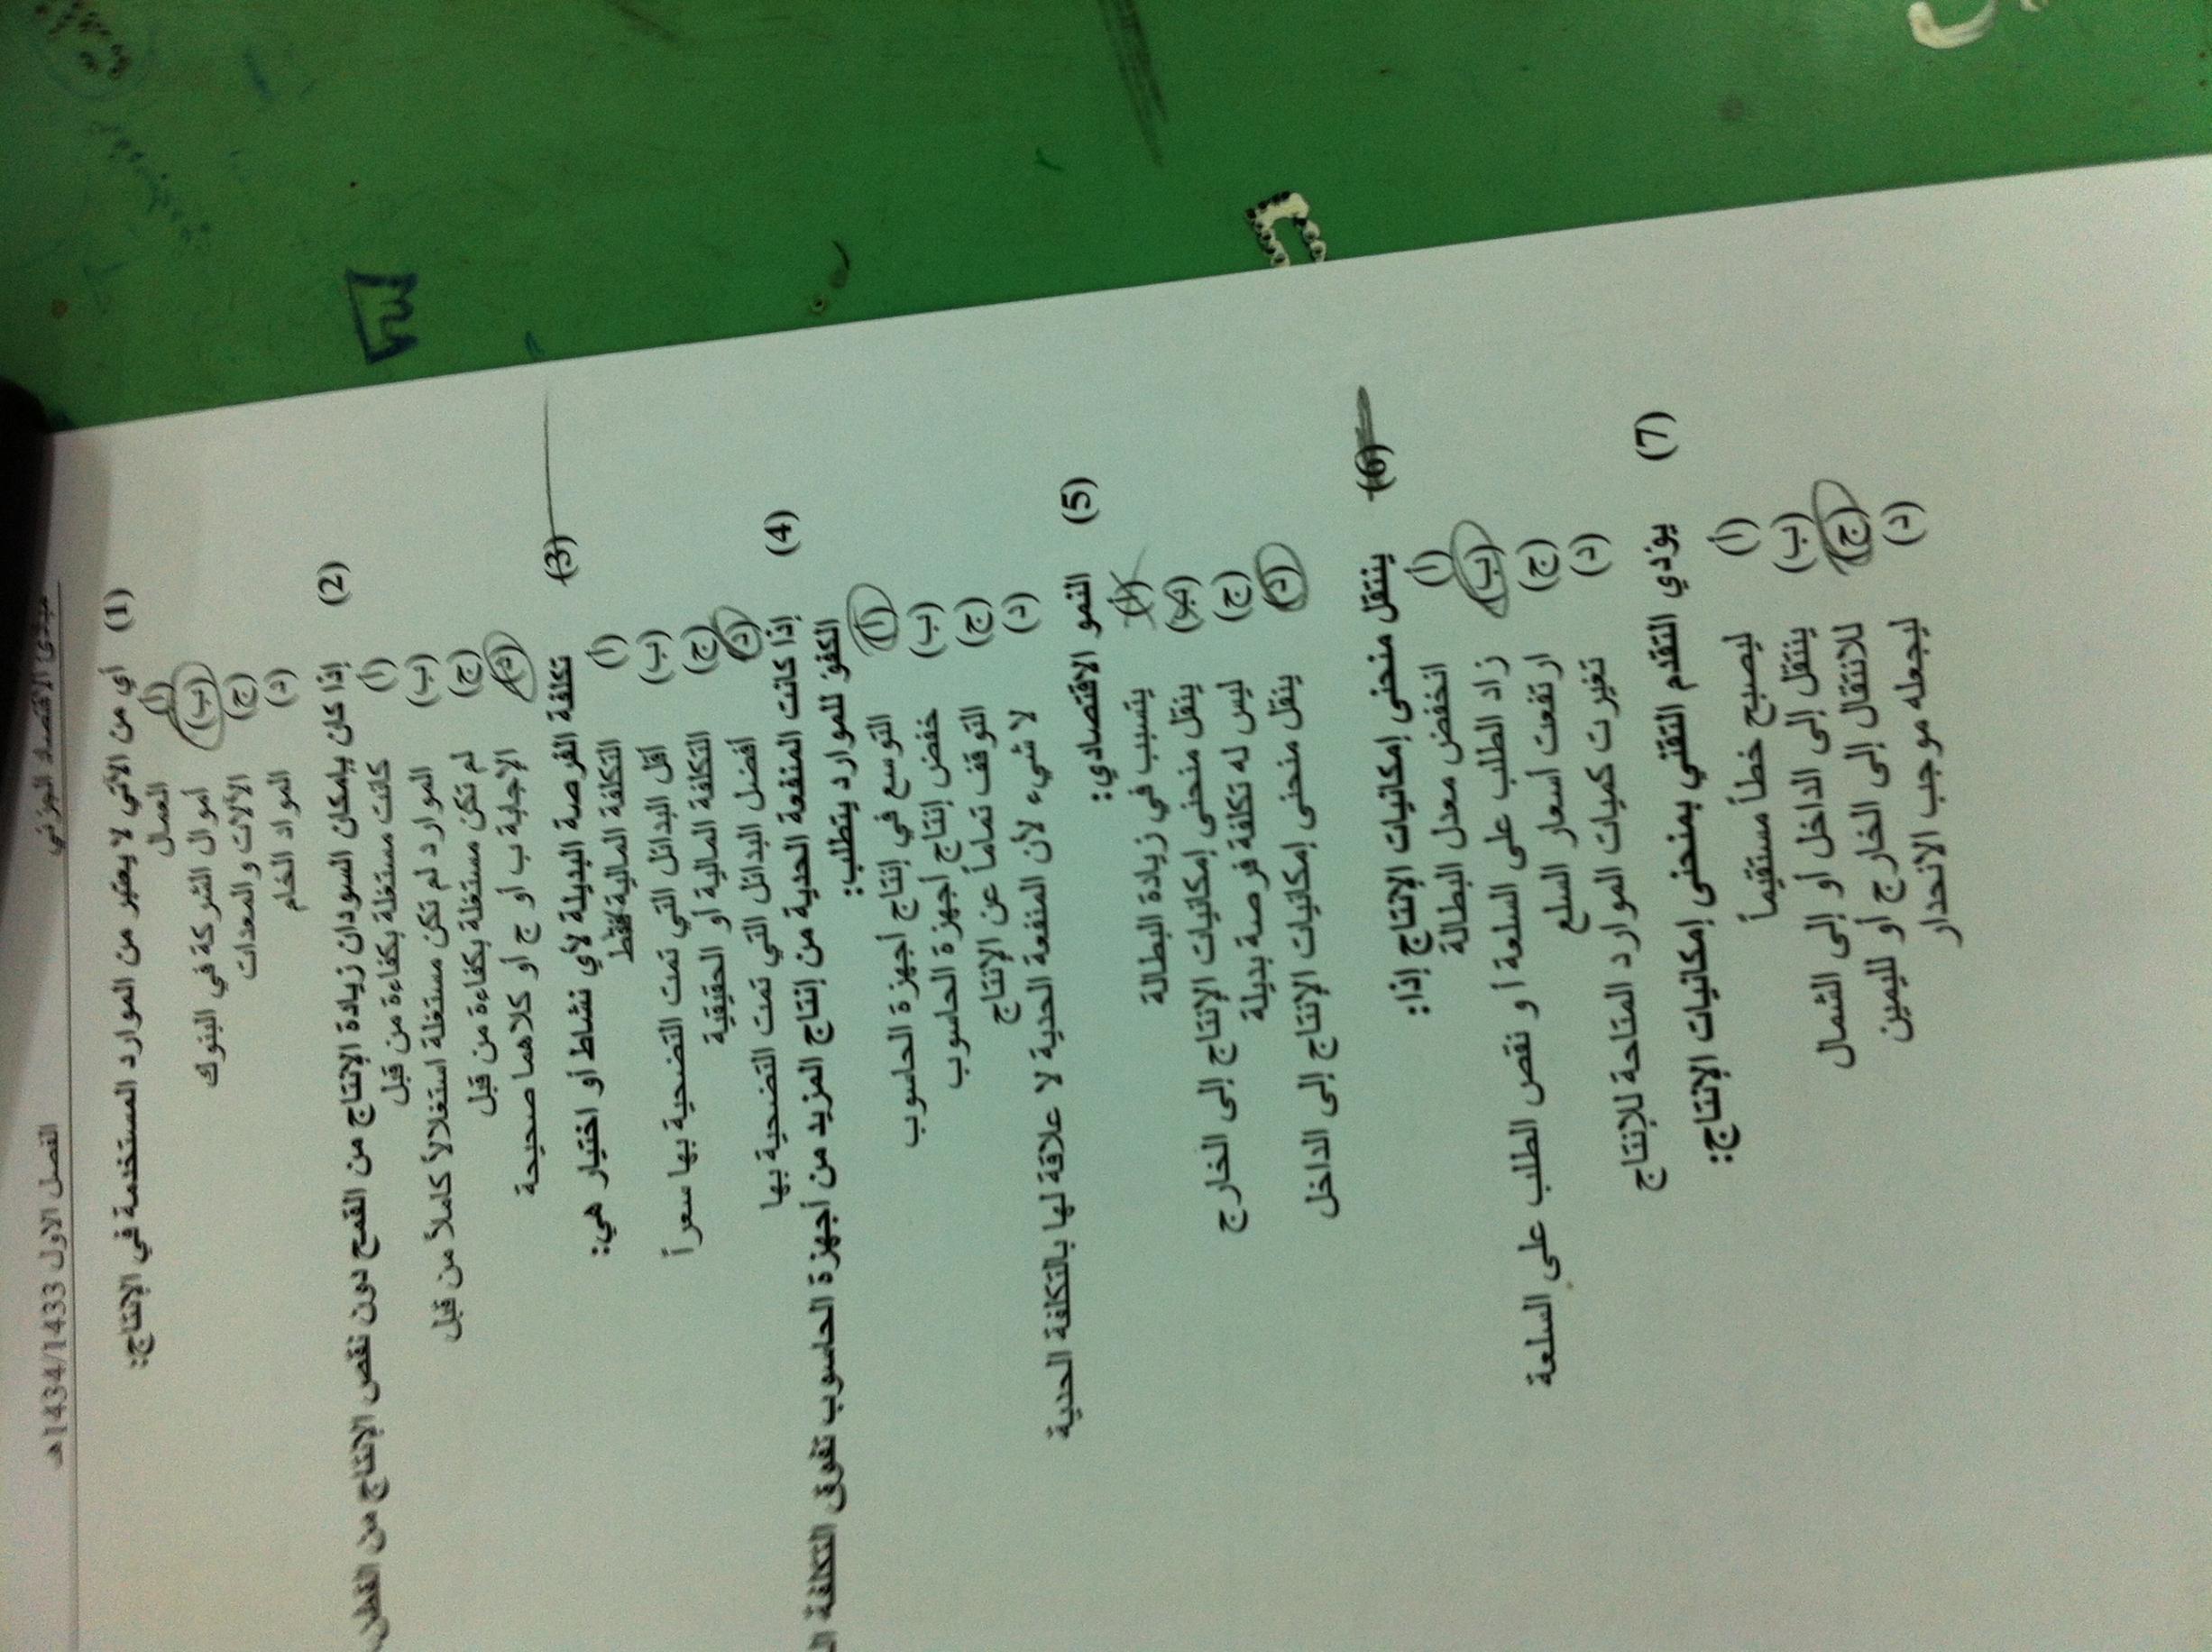 مبادئ الاقتصاد الجزئي الفصل الاول 1434/1433هـ
(1) أي من الآتي لا يعتبر من الموارد المستخدمة في الإنتاج:
(أ) العمال
(ب) أموال الشركة في البنوك
(ج) الآلات والمعدات
(د) المواد الخام
(2) إذا كان بإمكان السودان زيادة الإنتاج من القمح دون نقص الإنتاج من القطن
(أ) كانت مستغلة بكفاءة من قبل
(ب) الموارد لم تكن مستغلة استغلالاً كاملاً من قبل
(ج) لم تكن مستغلة بكفاءة من قبل
(د) الإجابة ب أو ج أو كلاهما صحيحة
(3) تكلفة الفرصة البديلة لأي نشاط أو اختيار هي:
(أ) التكلفة المالية فقط
(ب) أقل البدائل التي تمت التضحية بها سعراً
(ج) التكلفة المالية أو الحقيقية
(د) أفضل البدائل التي تمت التضحية بها
(4) إذا كانت المنفعة الحدية من إنتاج المزيد من أجهزة الحاسوب تفوق التكلفة
الكفؤ للموارد يتطلب:
(أ) التوسع في إنتاج أجهزة الحاسوب
(ب) خفض إنتاج أجهزة الحاسوب
(ج) التوقف تماماً عن الإنتاج
(د) لا شيء لأن المنفعة الحدية لا علاقة لها بالتكلفة الحدية
(5) النمو الاقتصادي:
(أ) يتسبب في زيادة البطالة
(ب) ينقل منحنى إمكانيات الإنتاج إلى الخارج
(ج) ليس له تكلفة فرصة بديلة
(د) ينقل منحنى إمكانيات الإنتاج إلى الداخل
(6) ينتقل منحنى إمكانيات الإنتاج إذا:
(أ) انخفض معدل البطالة
(ب) زاد الطلب على السلعة أو نقص الطلب على السلعة
(ج) ارتفعت أسعار السلع
(د) تغيرت كميات الموارد المتاحة للإنتاج
(7) يؤدي التقدم التقني بمنحنى إمكانيات الإنتاج:
(أ) ليصبح خطاً مستقيماً
(ب) ينتقل إلى الداخل أو إلى الشمال
(ج) للانتقال إلى الخارج أو لليمين
(د) ليجعله موجب الانحدار